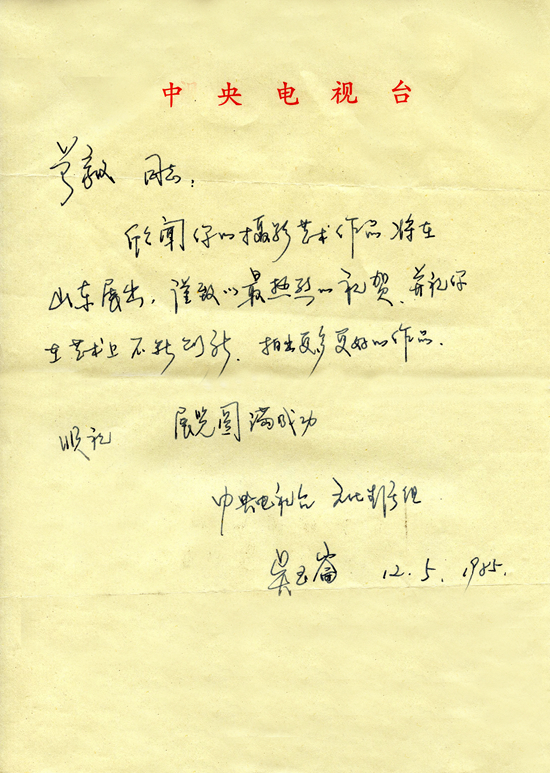 中央电视台
同志：
欣闻你的摄影艺术作品将在
山东展出，谨致以最热烈的祝贺，并祝你
在艺术上不断创新，拍出更多更好的作品。
顺祝 展览圆满成功
中央电视台 文化生活组
吴玉崙 12.5.1985.